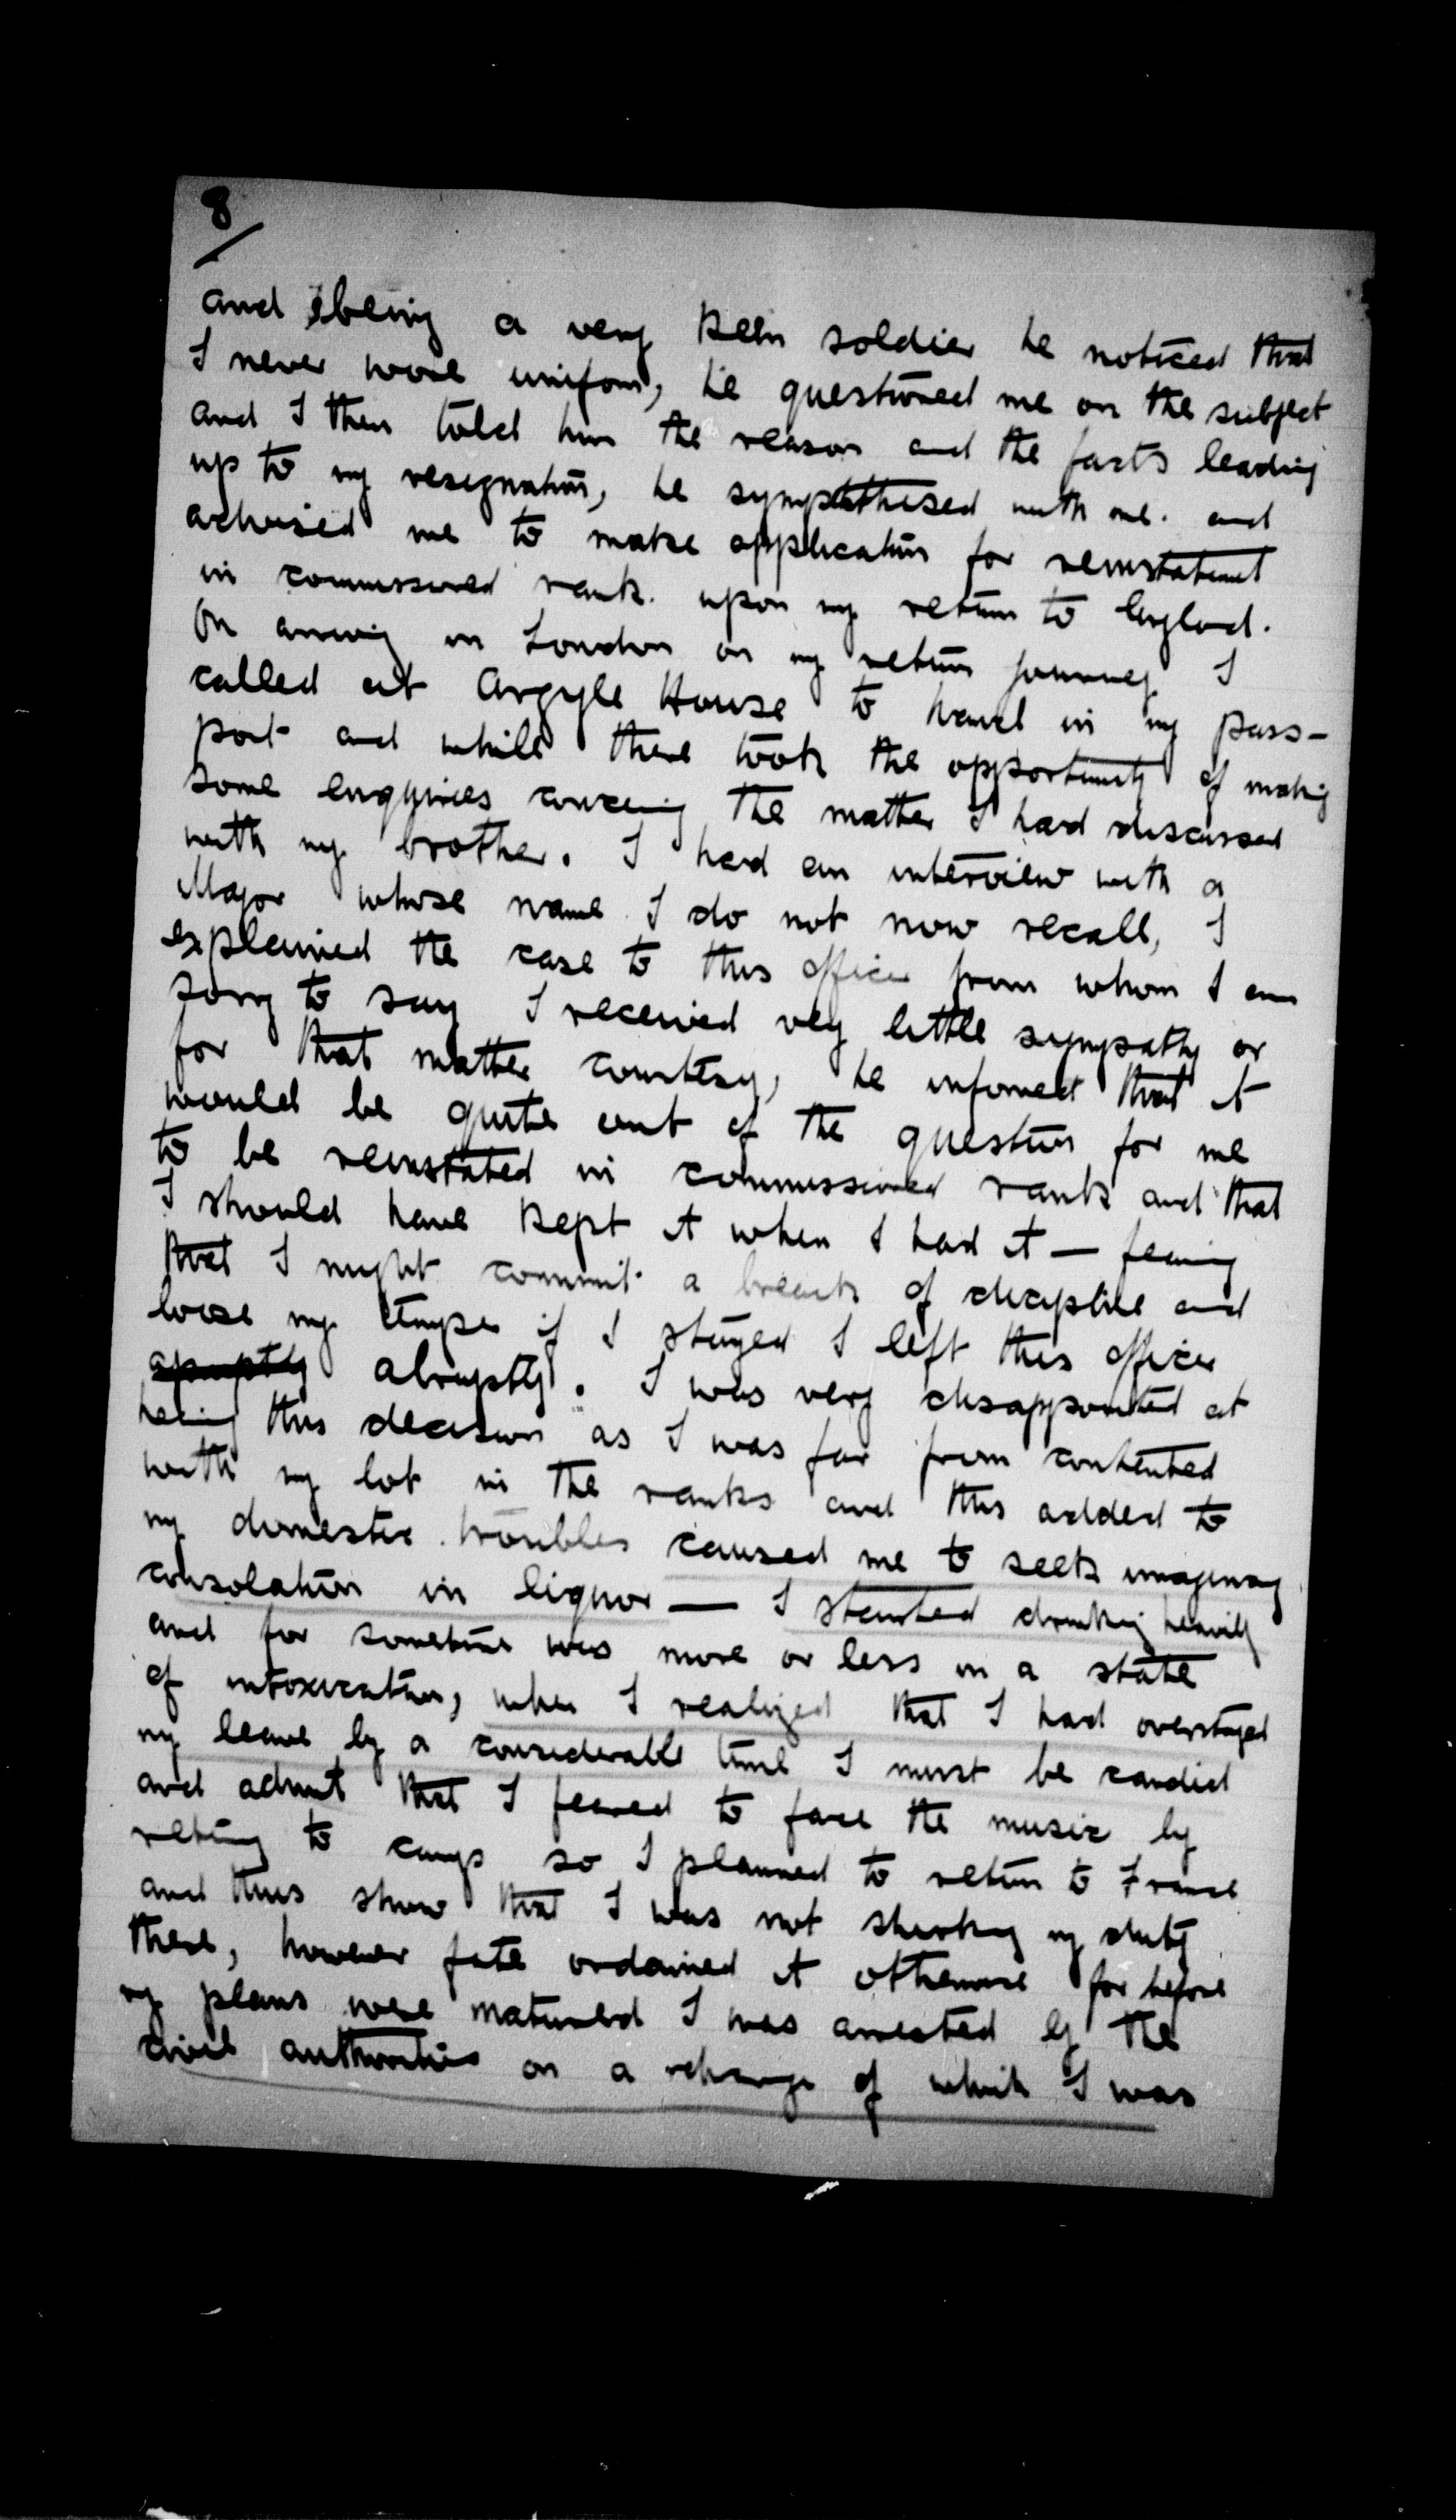 8
and being a very keen soldier he noticed that
I never wore uniform, he questioned me on the subject
and I then told him the reason and the facts leading
up to my resignation, he sympathised with me. and
advised me to make application for reinstatement
in commissioned rank. upon my return to England.
On arriving in London on my return journey I
called at Argyle House to hand in my pass-
port and while there took the opportunity of making
some enquiries concerning the matter I had discussed
with my brother. I had an interview with a
Major whose name I do not now recall, I
explained the case to this officer from whom I am
sorry to say I received very little sympathy or
for that matter courtesy, he informed that it
would be quite out of the question for me
to be reinstated in commissioned rank and that
I should have kept it when I had it — fearing
that I might commit a breach of discipline and
loose my temper if I stayed I left this officer
abruptly. I was very disappointed at
hearing this decision as I was far from contented
with my lot in the ranks and this added to
my domestic troubles caused me to seek imaginary
consolation in liquor — I started drinking heavily
and for sometime was more or less in a state
of intoxication, when I realized that I had overstayed
my leave by a considerable time I must be candid
and admit that I feared to face the music by
returning to camp so I planned to return to France
and thus show that I was not shirking my duty
there, however fate ordained it otherwise for before
my plans were matured I was arrested by the
civil authorities on a charge of which I was